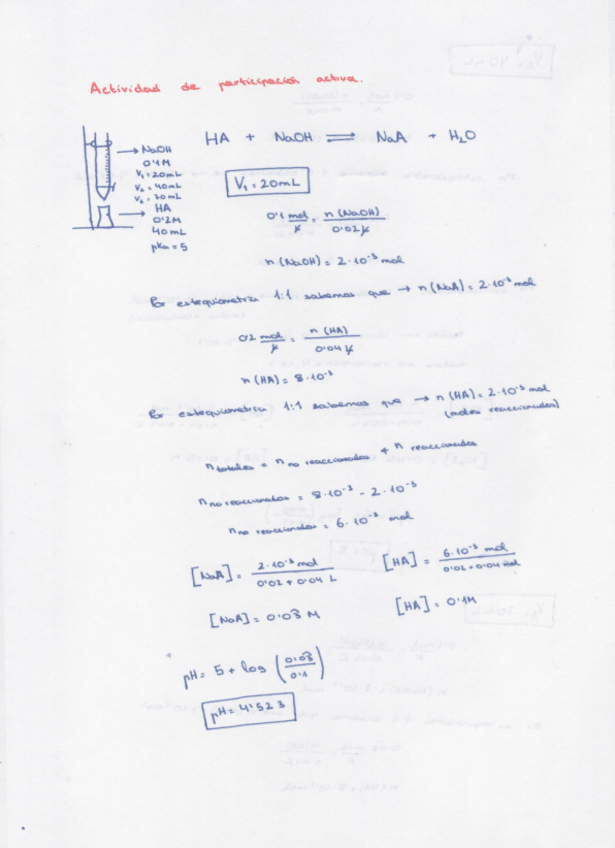 Actividad de participación activa.
NaOH
0'1M
V₁ = 20mL
V₂ = 40mL
HA
0'2M
40mL
pka = 5
HA + NaOH ⇌ NaA + H₂O
V₁ = 20mL
0'1 mol/L = n (NaOH)/0'02 L
n (NaOH) = 2·10⁻³ mol
Por estequiometria 1:1 sabemos que → n (NaA) = 2·10⁻³ mol
0'2 mol/L = n (HA)/0'04 L
n (HA) = 8·10⁻³
Por estequiometria 1:1 sabemos que → n (HA) = 2·10⁻³ mol
(moles reaccionados)
n totales = n no reaccionados + n reaccionados
n no reaccionados = 8·10⁻³ - 2·10⁻³
n no reaccionados = 6·10⁻³ mol
[NaA] = 2·10⁻³ mol/0'02 + 0'04 L [HA] = 6·10⁻³ mol/0'02 + 0'04
[NaA] = 0'03 M [HA] = 0'1M
pH = 5 + log (0'03/0'1)
pH = 4'523